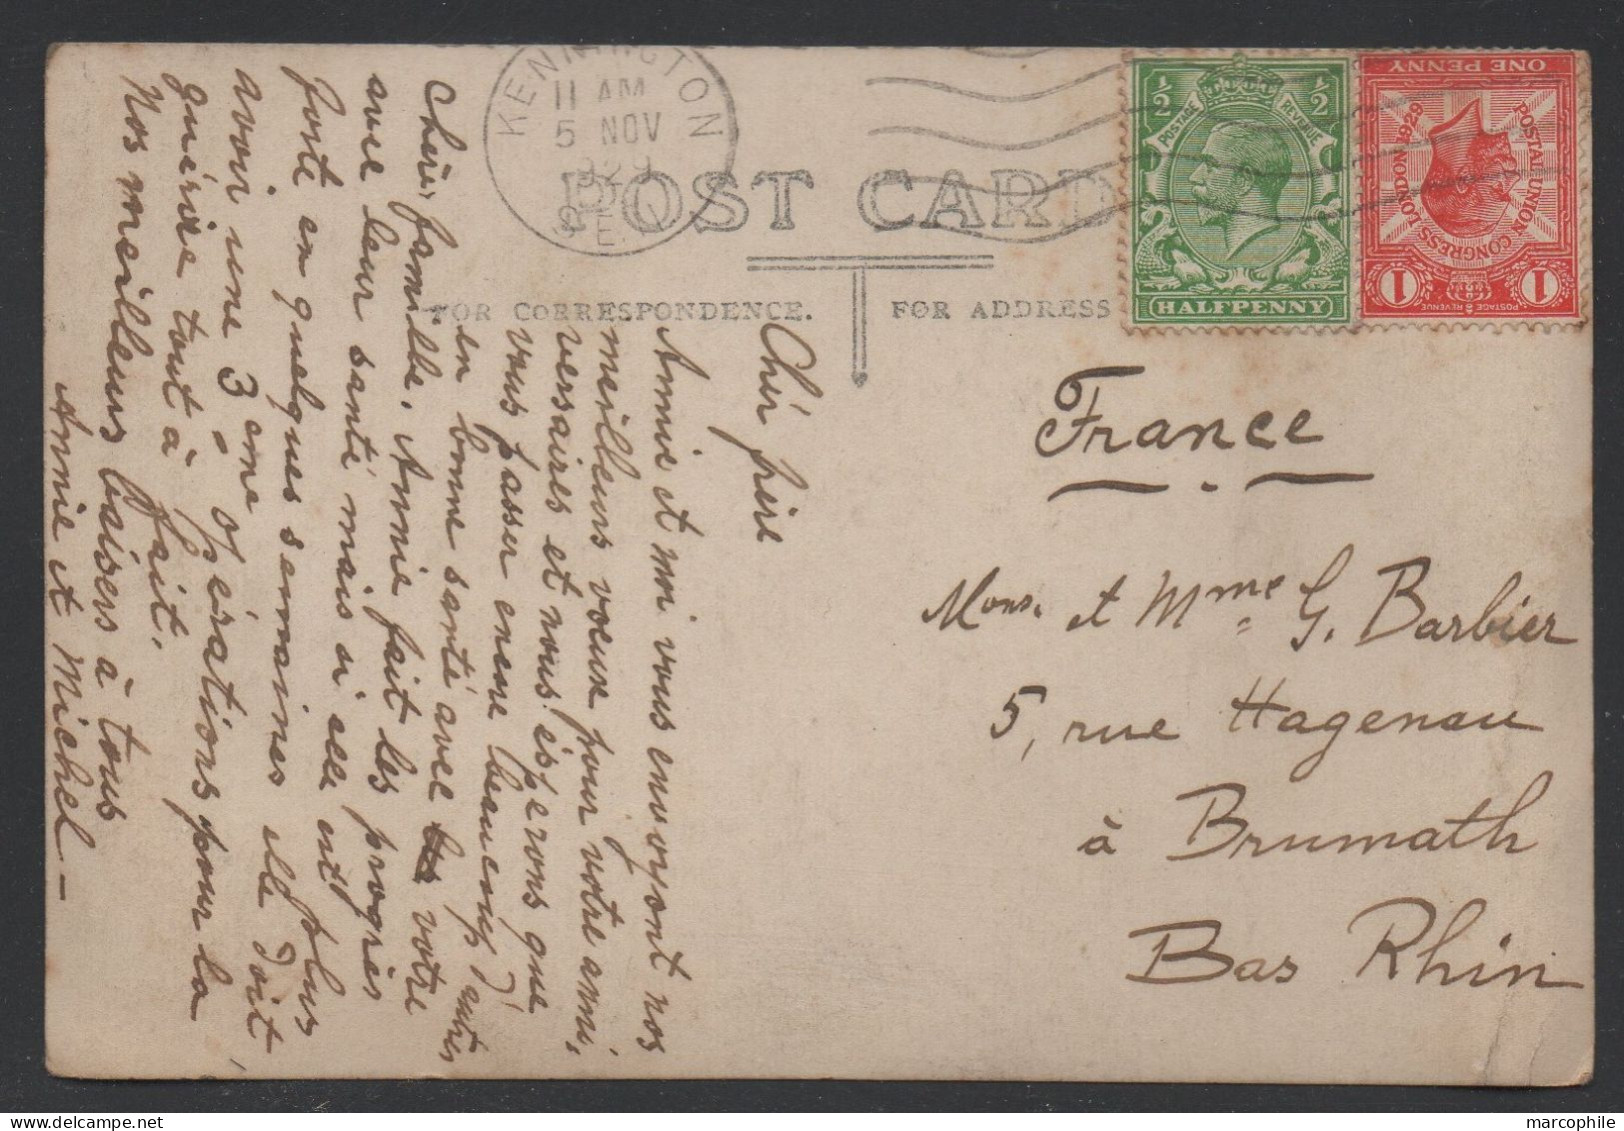 KENNINGTON
11 AM
5 NOV
1929
S.E.
POST CARD
FOR CORRESPONDENCE.
FOR ADDRESS
½ ½
POSTAGE REVENUE
HALFPENNY
ONE PENNY
POSTAL UNION CONGRESS LONDON 1929
1 1
POSTAGE & REVENUE
Chér frère
Annie et moi vous envoyont nos
meilleurs voeux pour votre anni,
versaires et nous éspérons que
vous passer encore beaucoup d'autres
en bonne santé avec votre
Chère famille. Annie fait les progrès
avec leur santé mais si elle est plus
forte en quelques semaines elle doit
avoir une 3ème opérations pour la
guérire tout à fait.
Nos meilleurs baisers à tous
Annie et Michel -
France
Mons. et Mme G. Barbier
5, rue Hagenau
à Brumath
Bas Rhin
marcophile